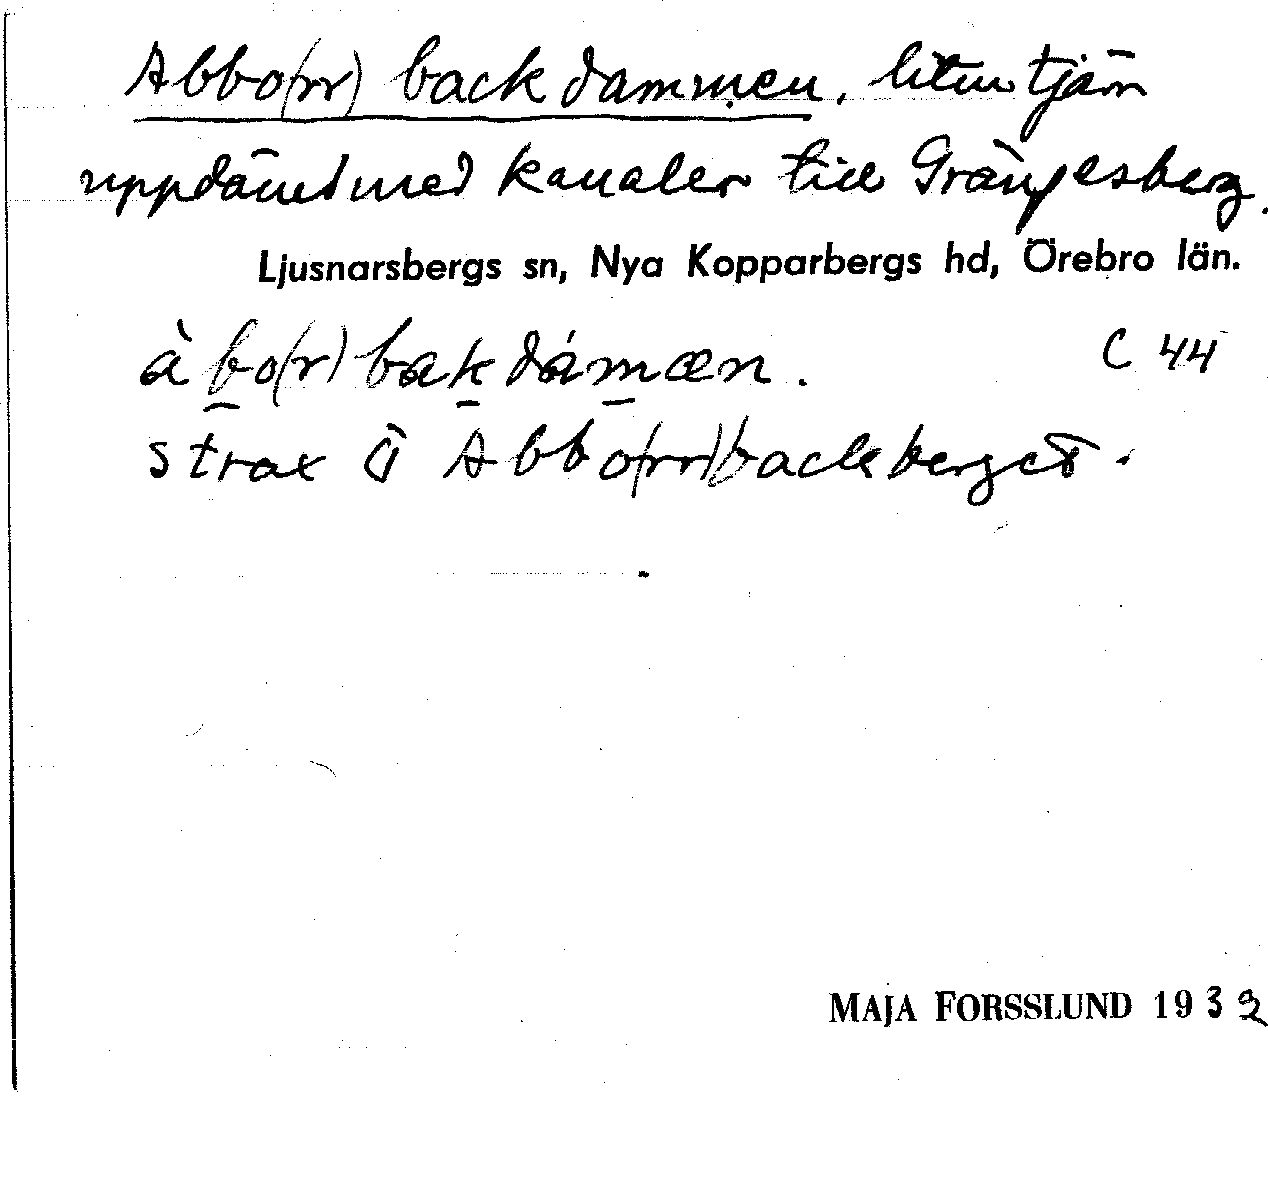 Abbo(rr)backdammen, liten tjärn
uppdämd med kanaler till Grängesberg.
Ljusnarsbergs sn, Nya Kopparbergs hd, Örebro län.
àb̲o(r)bak̲dám̲æn. C 44
strax Ö Abbo(rr)backberget.
MAJA FORSSLUND 1932